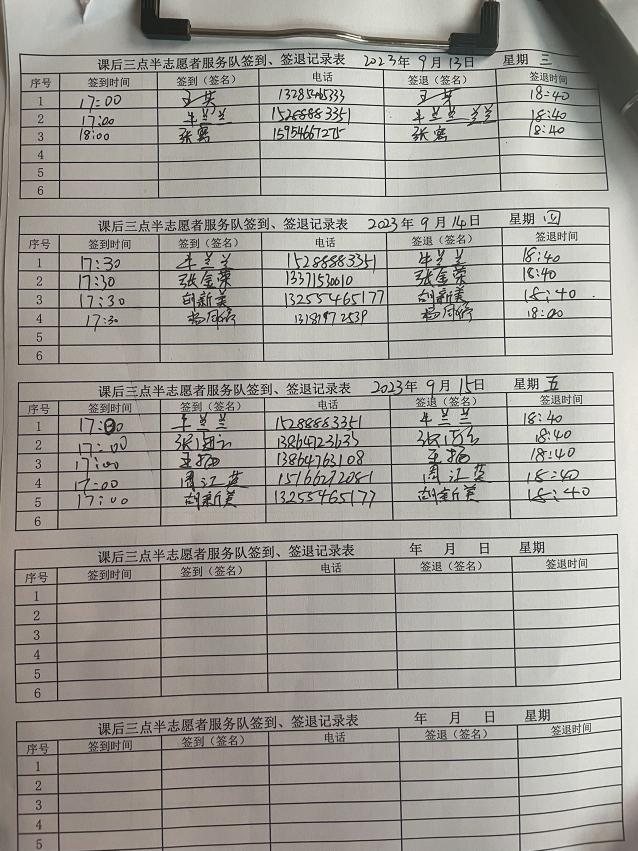 课后三点半志愿者服务队签到、签退记录表 2023年9月13日 星期 三
序号 签到时间 签到（签名） 电话 签退（签名） 签退时间
1 17:00 王英 王英 18:40
2 17:00 牛兰兰 15288883351 牛兰兰 兰兰 18:40
3 18:00 张 15954667275 张 18:40
4
5
6
课后三点半志愿者服务队签到、签退记录表 2023年9月14日 星期 四
序号 签到时间 签到（签名） 电话 签退（签名） 签退时间
1 17:30 牛兰兰 15288883351 牛兰兰 18:40
2 17:30 张金荣 13371530010 张金荣 18:40
3 17:30 胡新美 13255465177 胡新美 18:40
4 17:30 13181972539 18:00
5
6
课后三点半志愿者服务队签到、签退记录表 2023年9月15日 星期 五
序号 签到时间 签到（签名） 电话 签退（签名） 签退时间
1 17:00 牛兰兰 15288883351 牛兰兰 18:40
2 17:00 张 张 18:40
3 17:00 王 13864763108 王 18:40
4 17:00 周江燕 15166272081 周江燕 18:40
5 17:00 胡新美 13255465177 胡新美 18:40
6
课后三点半志愿者服务队签到、签退记录表 年 月 日 星期
序号 签到时间 签到（签名） 电话 签退（签名） 签退时间
1
2
3
4
5
6
课后三点半志愿者服务队签到、签退记录表 年 月 日 星期
序号 签到时间 签到（签名） 电话 签退（签名） 签退时间
1
2
3
4
5